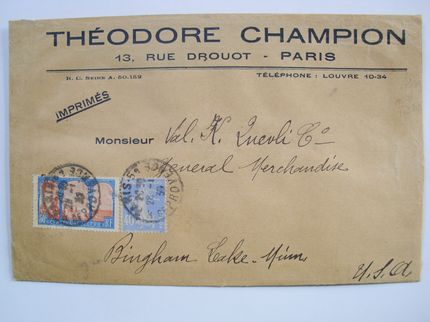 THÉODORE CHAMPION
13, RUE DROUOT - PARIS
R. C. SEINE A. 50.152
TÉLÉPHONE : LOUVRE 10-34
IMPRIMÉS
Monsieur Val. K. Co
General Merchandise
Bingham Lake - Minn.
U.S.A